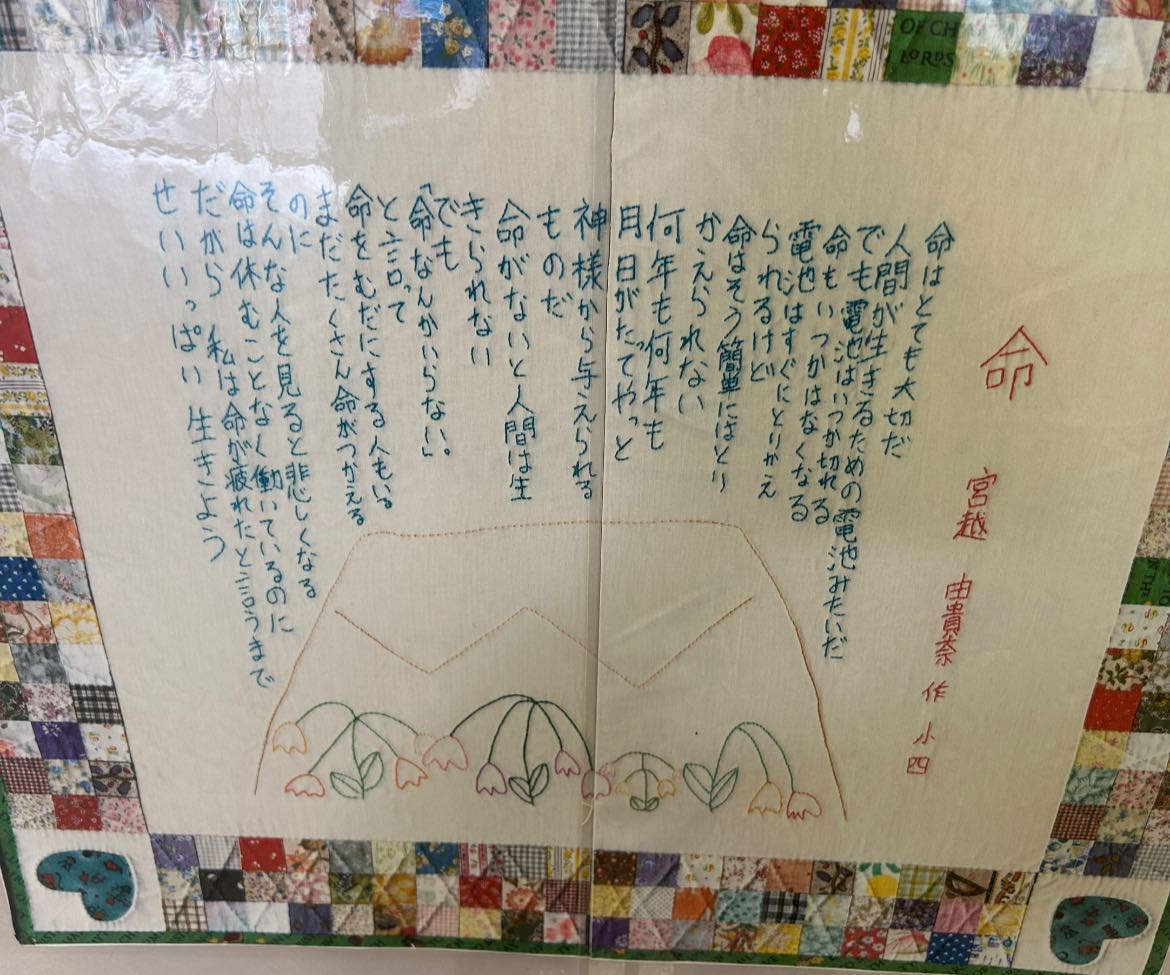 命
宮越 由貴奈 作 小四
命はとても大切だ
人間が生きるための電池みたいだ
でも電池はいつか切れる
命もいつかはなくなる
電池はすぐにとりかえ
られるけど
命はそう簡単にはとり
かえられない
何年も何年も
月日がたってやっと
神様から与えられる
ものだ
命がないと人間は生
きられない
でも
「命なんかいらない。」
と言って
命をむだにする人もいる
まだたくさん命がつかえる
のに
そんな人を見ると悲しくなる
命は休むことなく働いているのに
だから 私は命が疲れたと言うまで
せいいっぱい生きよう
OF CH
LORDS